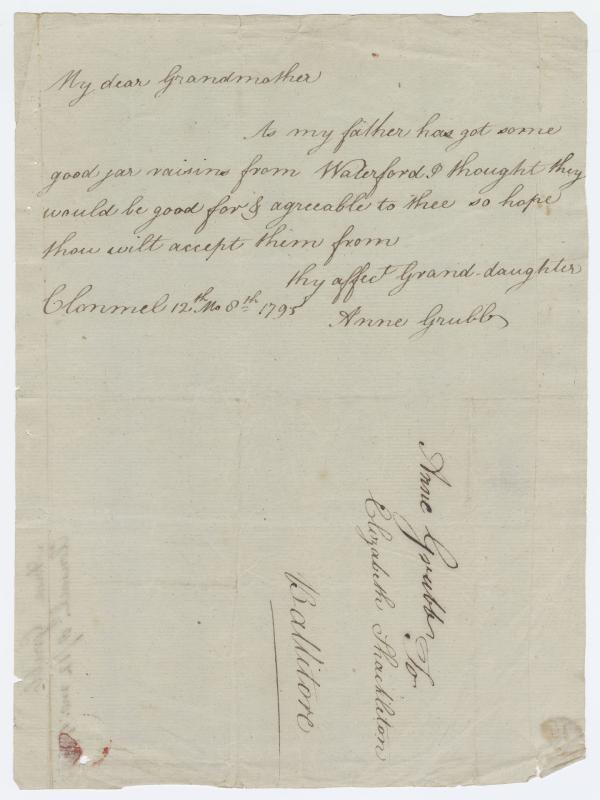 My dear Grandmother
As my father has got some
good jar raisins from Waterford I thought they
would be good for & agreeable to thee so hope
thou wilt accept them from
thy affect Grand-daughter
Clonmel 12th Mo 8th 1795
Anne Grubb
Anne Grubb To
Elizabeth Shackleton
Ballitore